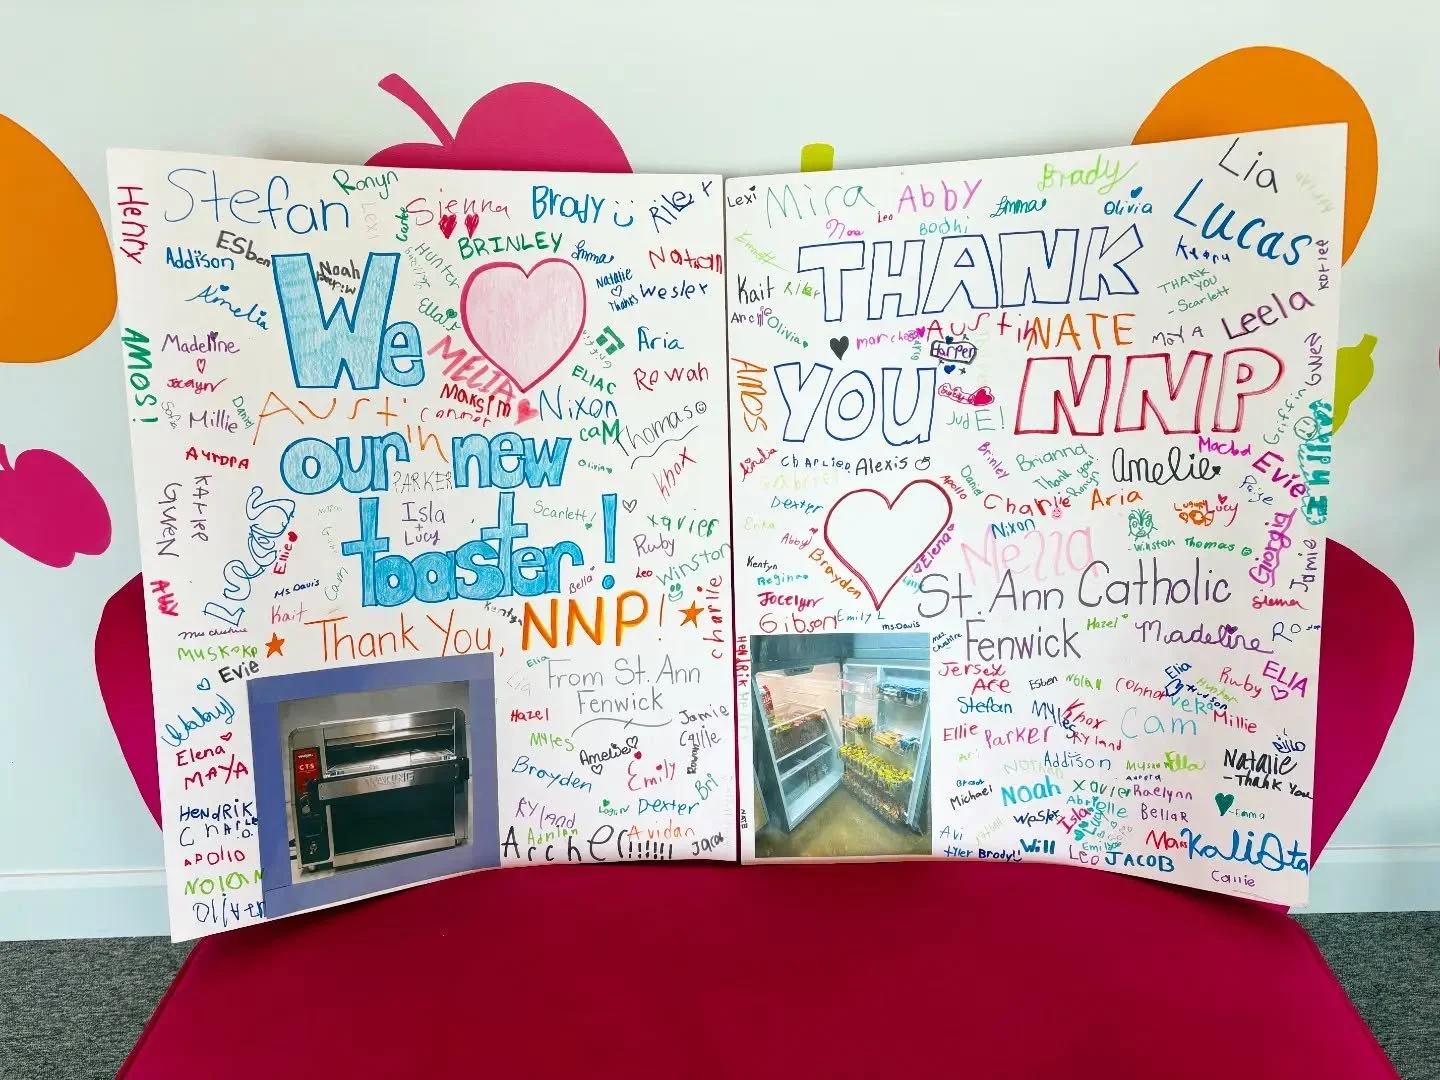 Stefan
Ronyn
Sienna
Brady
Riley
Henry
Lexi
Carter
ESben
Addison
Noah
Hunter
BRINLEY
Emma
Natalie
Thanks
Wesley
Amelia
We
Ella
AMOS!
Madeline
Jocelyn
MELIA
Maksim
Connor
ELIAC
Aria
Rowan
Millie
Daniel
Austin
Nixon
caM
Thomas
AUrORA
our new
PARKER
Olivia
Knox
GWEN
Lucas
Isla
+
Lucy
Scarlett!
xavier
toaster!
Ellie
Ruby
Winston
Leo
Ms. Davis
Cam
Bella
Kait
Thank You, NNP!
Charlie
Evie
From St. Ann
Fenwick
Elena
MAYA
Hazel
Myles
Amelie
Jamie
Callie
Rowan
Brayden
Emily
Bri
HENDRIK
Charlie
Rylend
Logan
Dexter
Adrian
Avidan
APOllO
NOlaN
Archer!!!!!!
Jacob
WARING
CTS
Lexi
Mira
Leo
Abby
Emma
Brady
Olivia
Lia
Lucas
Nora
Bodhi
Emmett
THANK
THANK
YOU
- Scarlett
Kait
Riley
Archie
Olivia
Austin
NATE
Moya
Leela
Harper
YOU
NNP
GWEN
Griffin
Jude!
AMOS
Charliee
Alexis
Brinley
Daniel
Brianna
Thank you!
Ronyn
Amelie
Evie
Paige
Dexter
Apollo
Charlie
Aria
Lucy
Erika
Abby
Nixon
Mezza
Elena
Brayden
- Winston
Thomas
Georgia
Jamie
Kentyn
Regina
Jocelyn
St. Ann Catholic
Sienna
Gibson
Emily L
Ms. Davis
Fenwick
Hazel
Madeline
HENDRIK
Jersey
Ace
Esben
Nolan
Connor
Elia
Hudson
Ruby
ELIA
Stefan
Myles
Knox
Cam
Millie
Ellie
Parker
Ryland
Addison
Ella
Natalie
- Thank You
Michael
Noah
Xavier
Raelynn
Abrielle
Wesley
Isla
Bellar
- Emma
Avi
Will
Emilyse
tyler
Brody
Leo
JACOB
Kalista
Callie
NATE